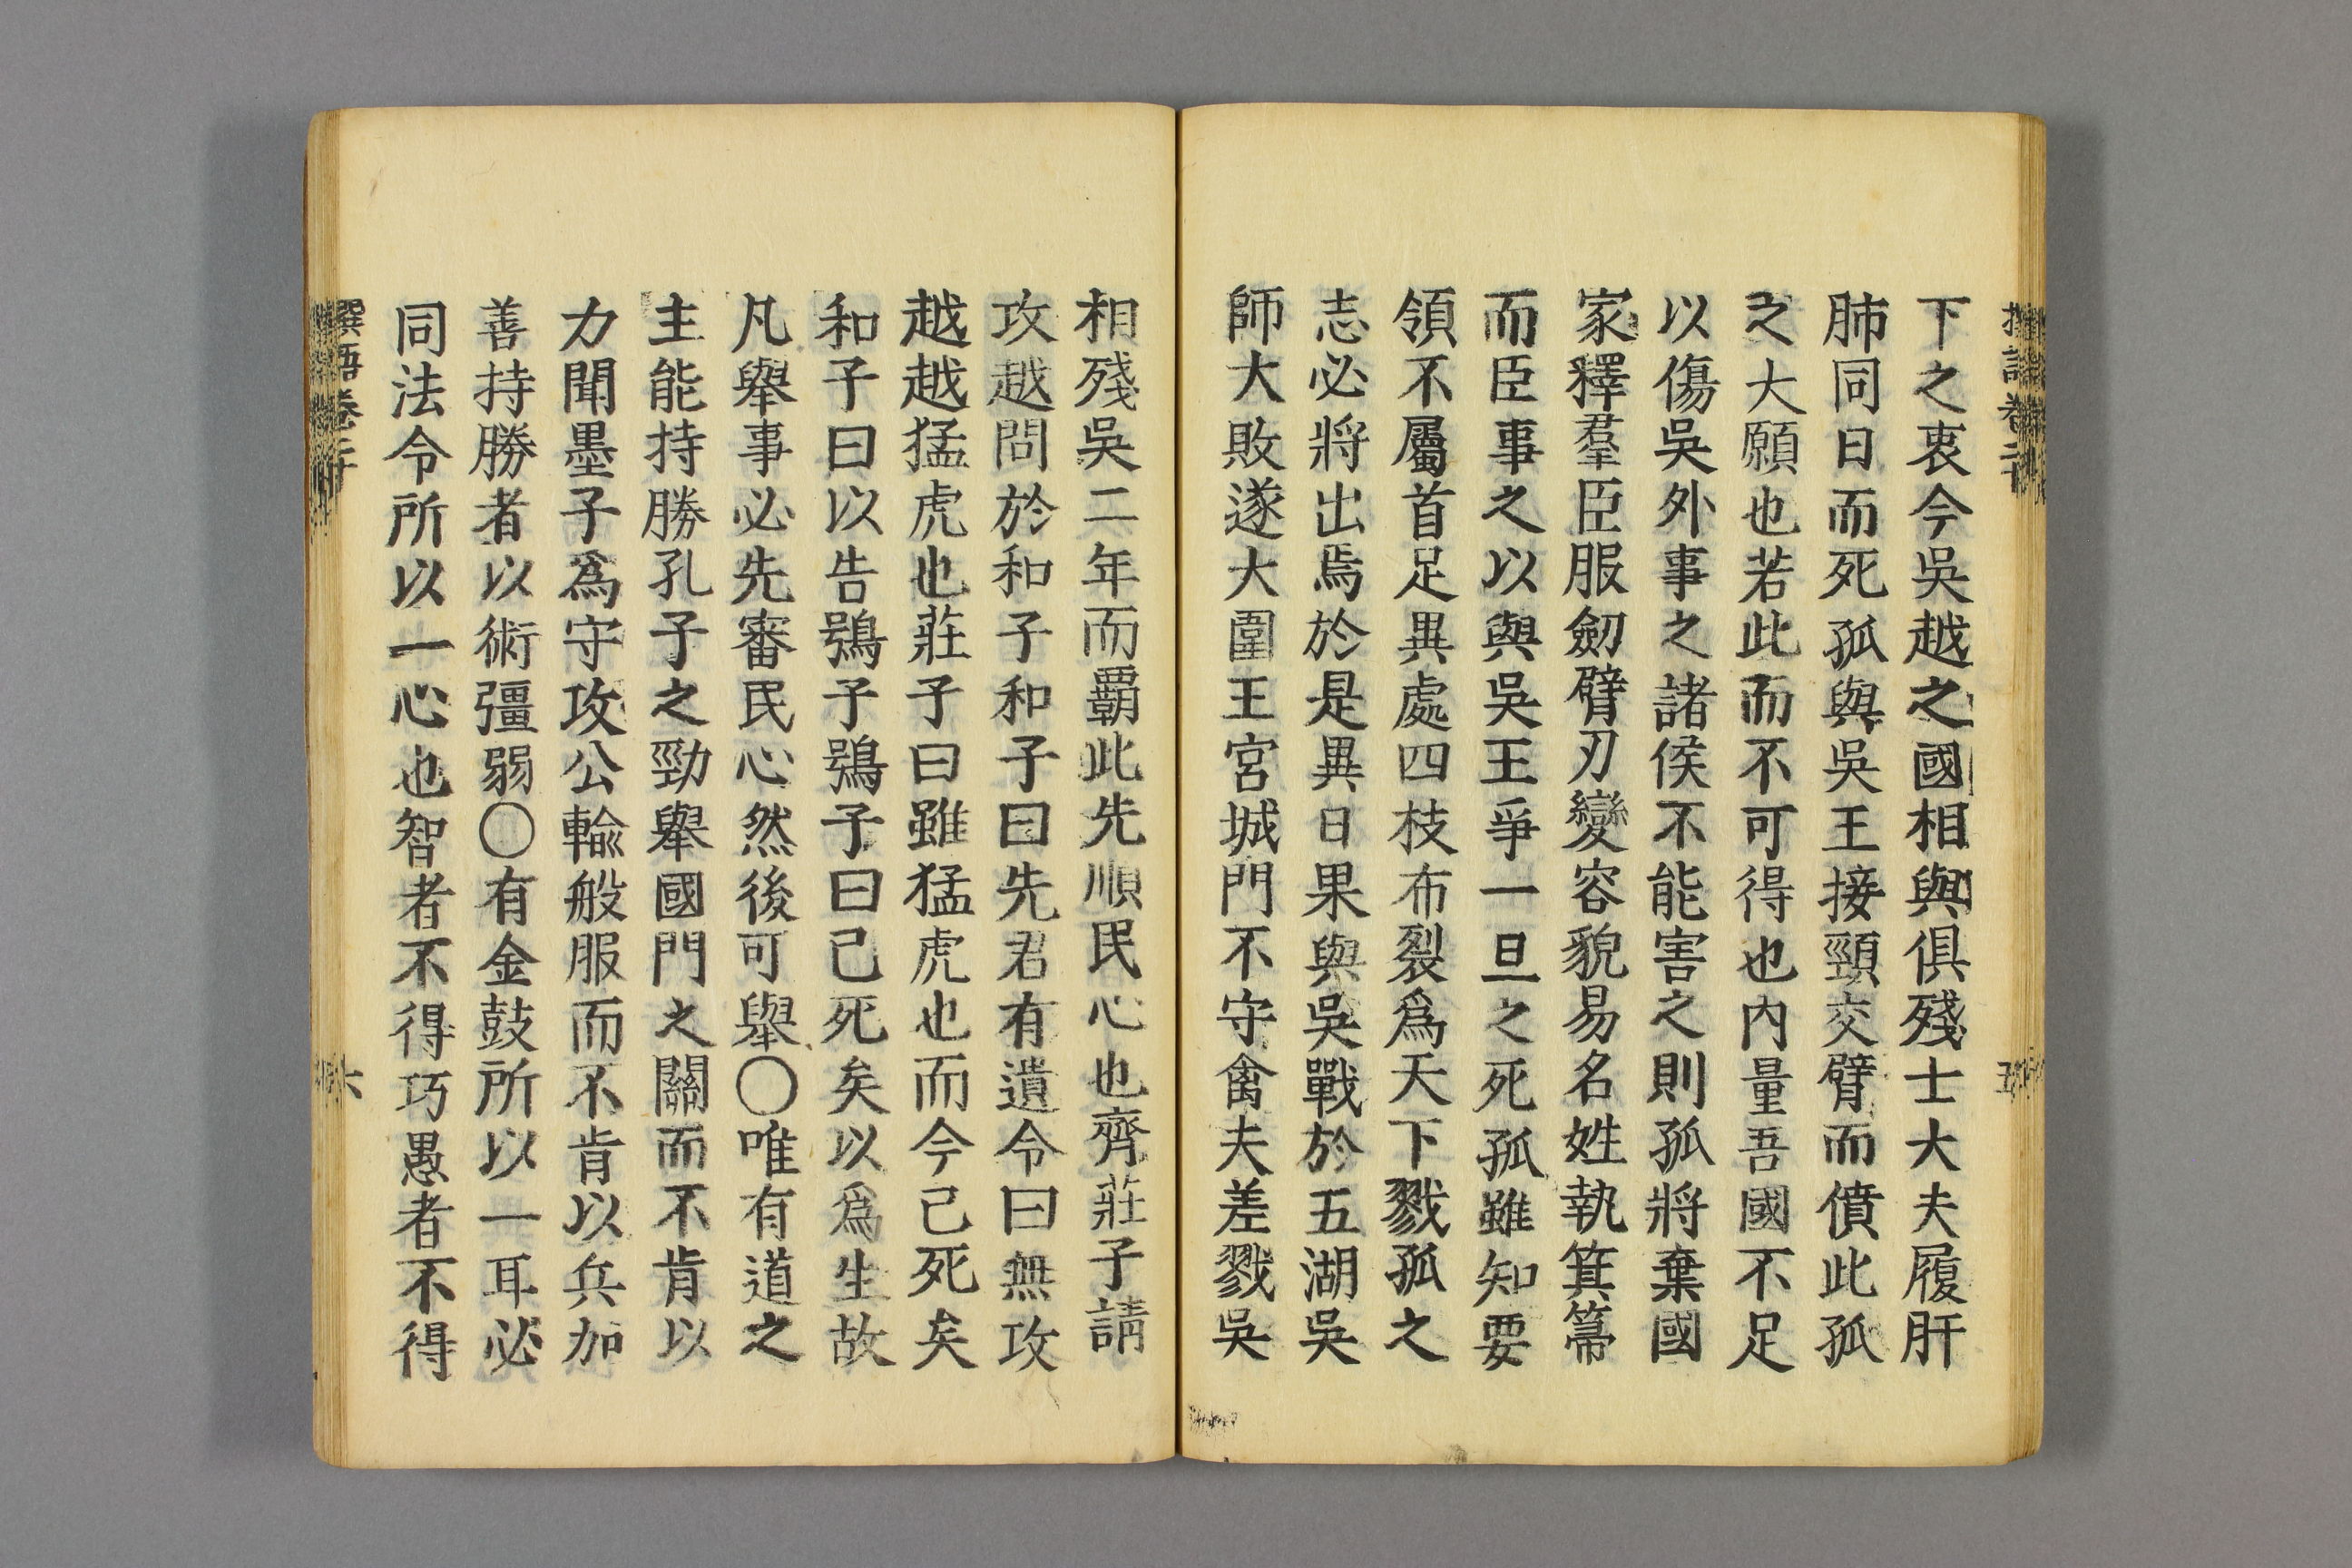 下之衷今吳越之國相與俱殘士大夫履肝
肺同日而死孤與吳王接頸交臂而僨此孤
之大願也若此而不可得也內量吾國不足
以傷吳外事之諸侯不能害之則孤將棄國
家釋羣臣服劒臂刃變容貌易名姓執箕箒
而臣事之以與吳王爭一旦之死孤雖知要
領不屬首足異處四枝布裂爲天下戮孤之
志必將出焉於是異日果與吳戰於五湖吳
師大敗遂大圍王宮城門不守禽夫差戮吳
相殘吳二年而覇此先順民心也齊莊子請
攻越問於和子和子曰先君有遺令曰無攻
越越猛虎也莊子曰雖猛虎也而今已死矣
和子曰以告鴞子鴞子曰已死矣以爲生故
凡舉事必先審民心然後可舉〇唯有道之
主能持勝孔子之勁舉國門之關而不肯以
力聞墨子爲守攻公輸般服而不肯以兵加
善持勝者以術彊弱〇有金鼓所以一耳必
同法令所以一心也智者不得巧愚者不得
卷二十
六